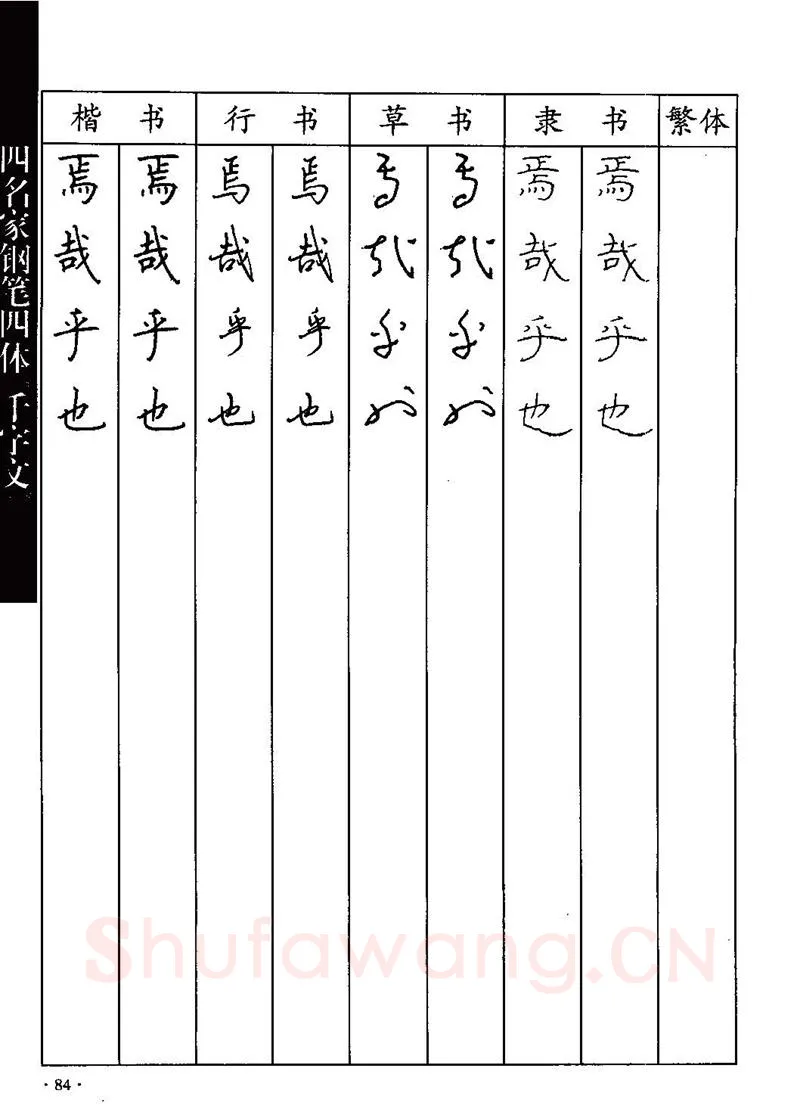 四名家钢笔四体 千字文
楷书 行书 草书 隶书 繁体
焉 焉 焉 焉 焉 焉 焉 焉
哉 哉 哉 哉 哉 哉 哉 哉
乎 乎 乎 乎 乎 乎 乎 乎
也 也 也 也 也 也 也 也
Shufawang.CN
·84·